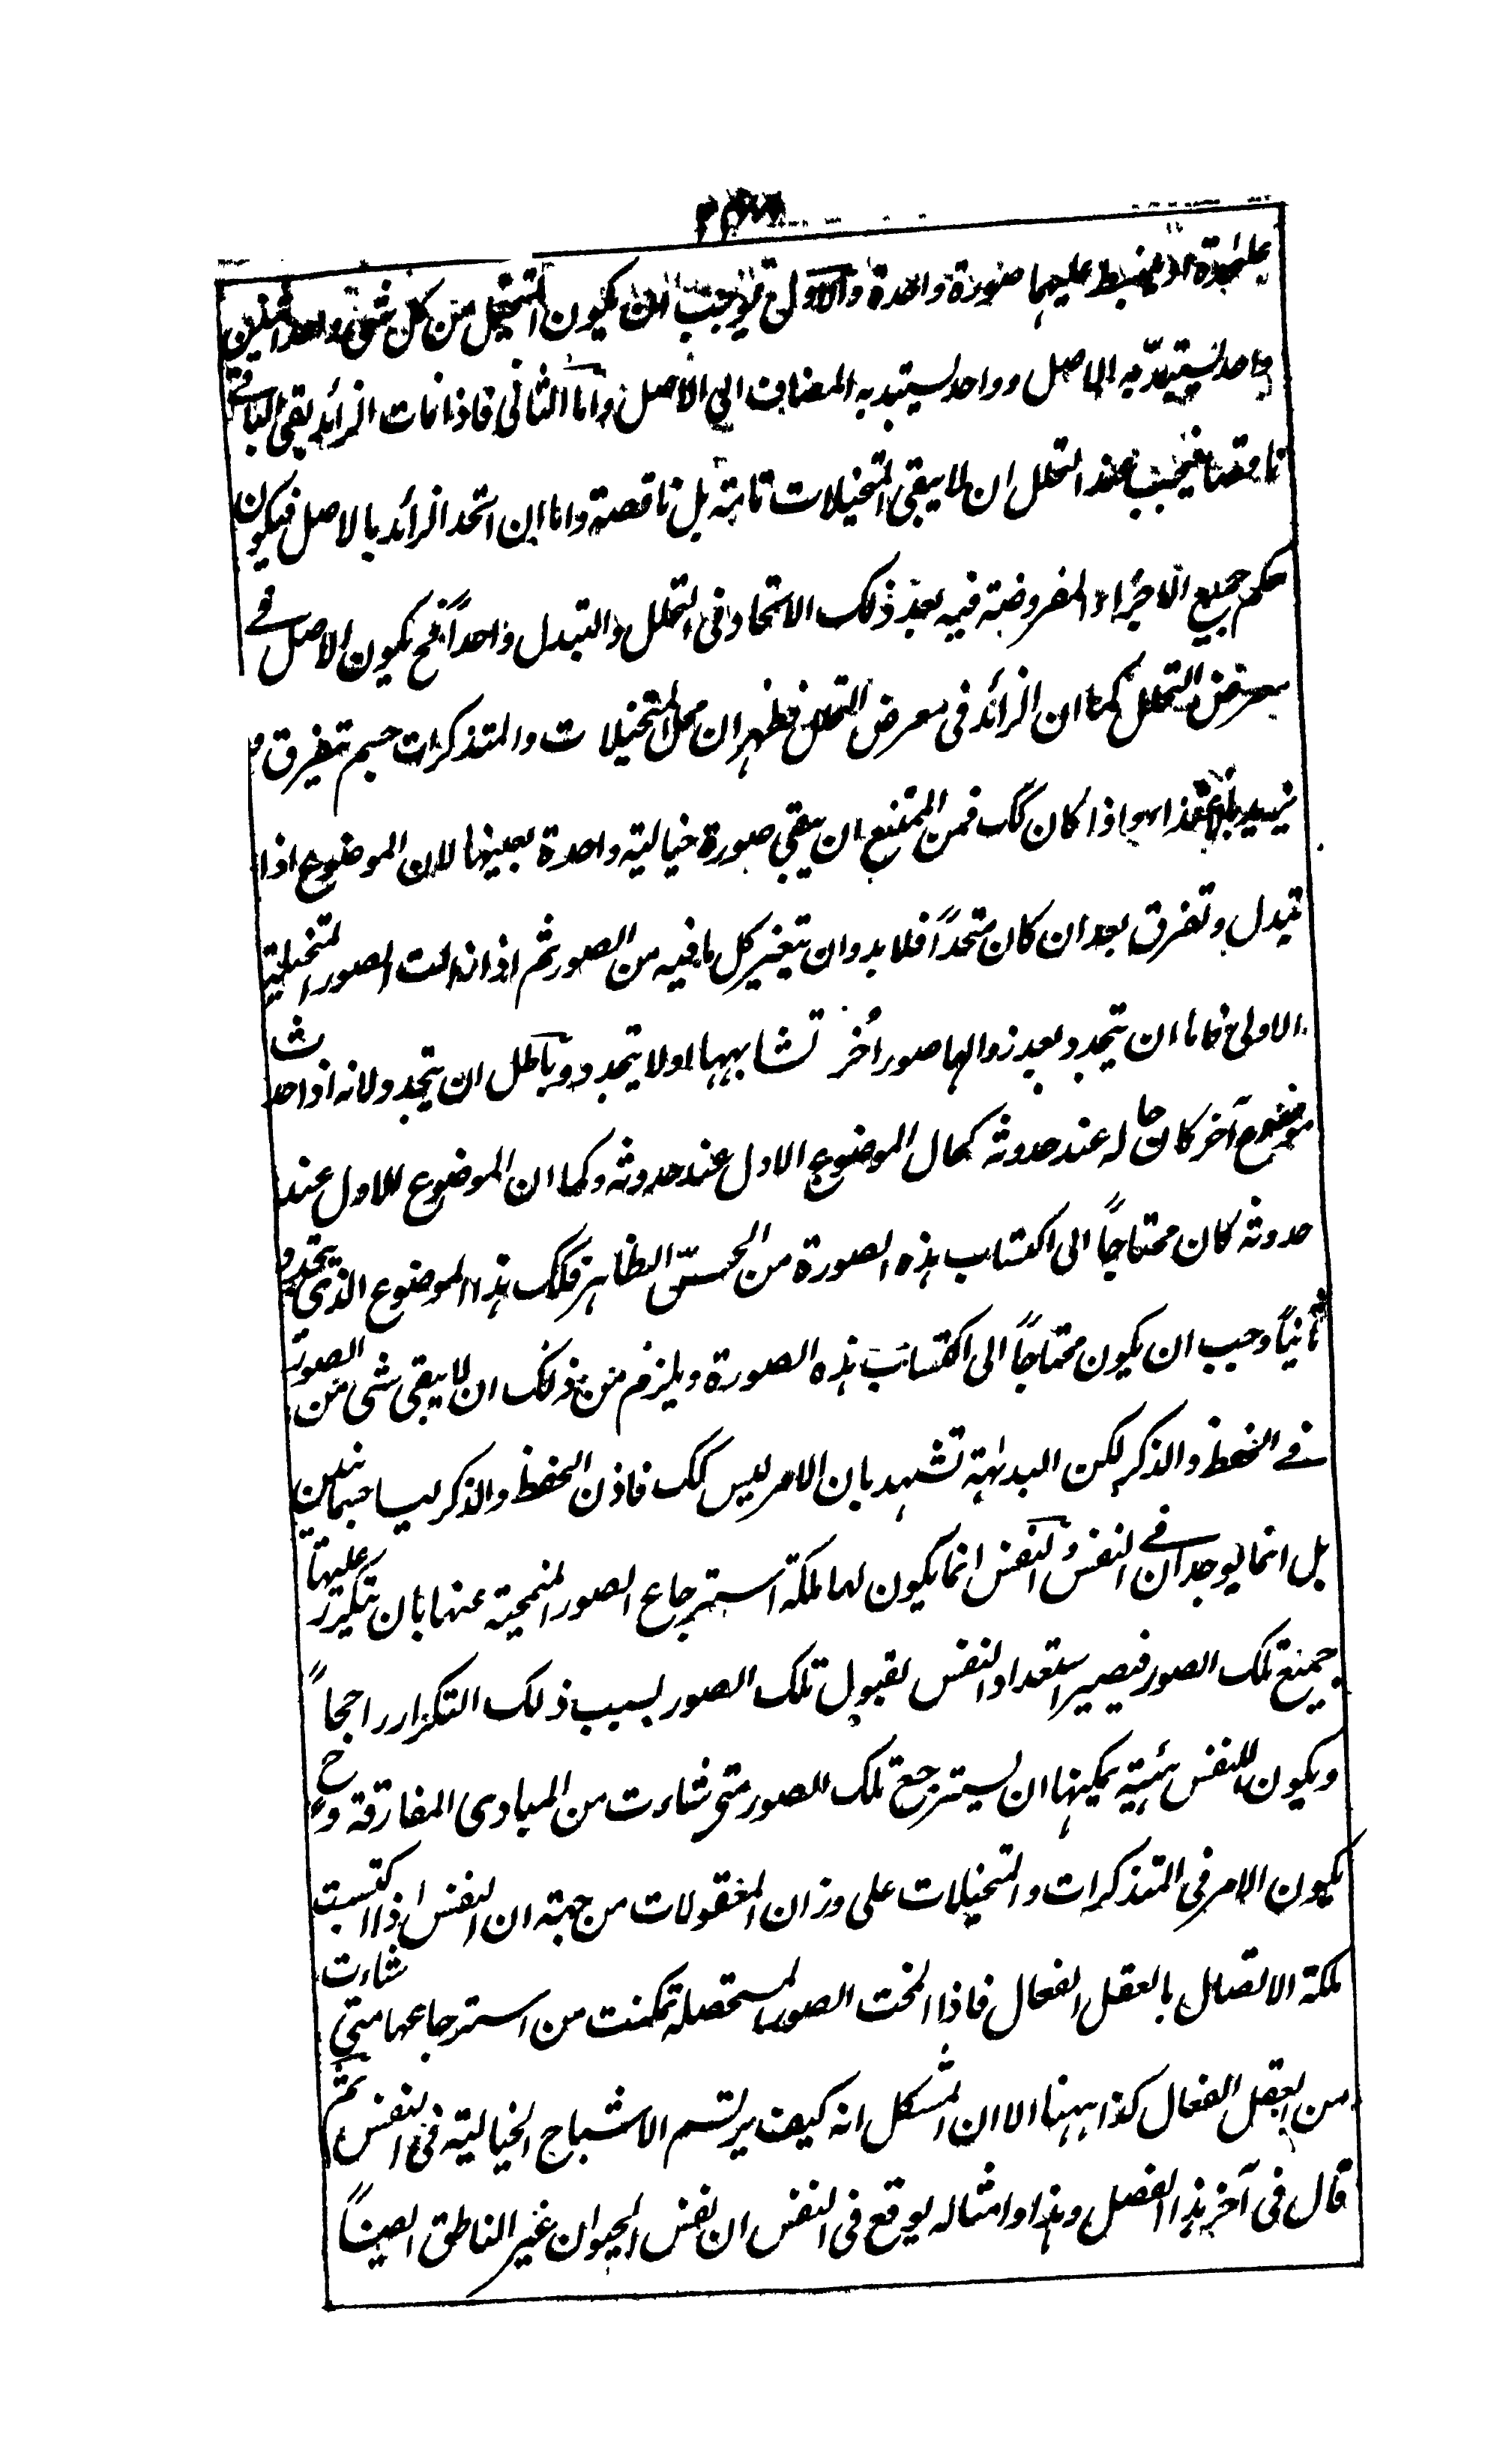 علٰحدة او ينبسط عليهما صورة واحدة والاول يوجب ان يكون المتخيل من كل شئ واحد اثنين
واحد يستبد به الاصل وواحد يستبد به المضاف الى الاصل واما الثانى فاذا مات الزائد بقى الباقے
ناقصا فيجب عند التحلل ان لا يبقى المتخيلات تامة بل ناقصة واما ان اتحد الزائد بالاصل فيكون
حكم جميع الاجزاء المفروضة فيه بعد ذلك الاتحاد فى التحلل والتبدل واحداً فح يكون الاصل فے
معرض التحلل كما ان الزائد فى معرض التحلل فظهر ان محل المتخيلات والمتذكرات جسم يتفرق و
يزيد بالاغتذاء واذا كان كك فمن الممتنع ان يبقى صورة خيالية واحدة بعينها لان الموضوع اذا
تبدل وتفرق بعد ان كان متحداً فلا بد وان يتغير كل ما فيه من الصور ثم اذا زالت الصور المتخيلة
الاولى فاما ان يتجدد بعد زوالها صور اُخر تشابهها اولا يتجدد وباطل ان يتجدد لانه اذا حدث
موضوع آخر كان حاله عند حدوثه كحال الموضوع الاول عند حدوثه وكما ان الموضوع الاول عند
حدوثه كان محتاجاً الى اكتساب هذه الصورة من الحسّ الظاهر فكك هذا الموضوع الذى يتجدد
ثانياً وجب ان يكون محتاجاً الى اكتساب هذه الصورة ويلزم من ذلك ان لا يبقى شئ من الصور
فے الحفظ والذكر لكن البداهة تشهد بان الامر ليس كك فاذن الحفظ والذكر ليسا جسمانيين
بل انما يوجدان فے النفس والنفس انما يكون لها ملكة استرجاع الصور المنمحية عنها بان يتكرر عليها
جميع تلك الصور فيصير استعداد النفس لقبول تلك الصور بسبب ذلك التكرار راجحاً
ويكون للنفس هيئة يمكنها ان يسترجع تلك الصور متى شاءت من المبادى المفارقة وح
يكون الامر فى المتذكرات والمتخيلات على وزان المعقولات من جهة ان النفس اذا اكتسبت
ملكة الاتصال بالعقل الفعال فاذا انمحت الصور المستحصلة تمكنت من استرجاعها متى شاءت
من العقل الفعال كذا ههنا الا ان المشكل انه كيف يرتسم الاشباح الخيالية فى النفس ثم
قال فى آخر هذا الفصل وهذا وامثاله يوقع فى النفس ان نفس الحيوان غير الناطق ايضاً